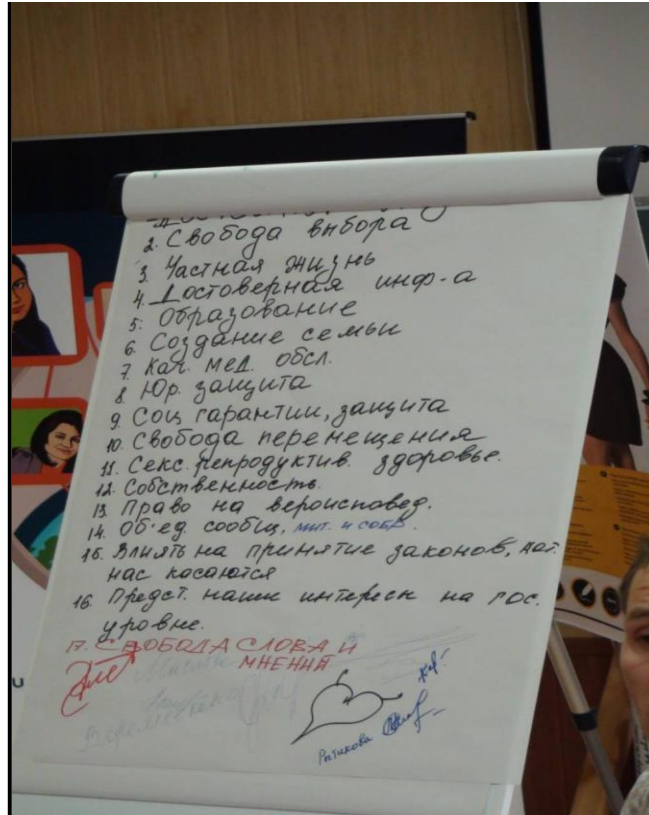 2. Свобода выбора
3. Частная жизнь
4. Достоверная инф-а
5. Образование
6. Создание семьи
7. Кач. мед. обсл.
8. Юр. защита
9. Соц гарантии, защита
10. Свобода перемещения
11. Секс. репродуктив. здоровье.
12. Собственность.
13. Право на вероисповед.
14. Об'ед. сообщ, мит. и собр.
15. Влиять на принятие законов, кот.
нас касаются
16. Предст. наши интересы на гос.
уровне.
17. СВОБОДА СЛОВА И
МНЕНИЯ